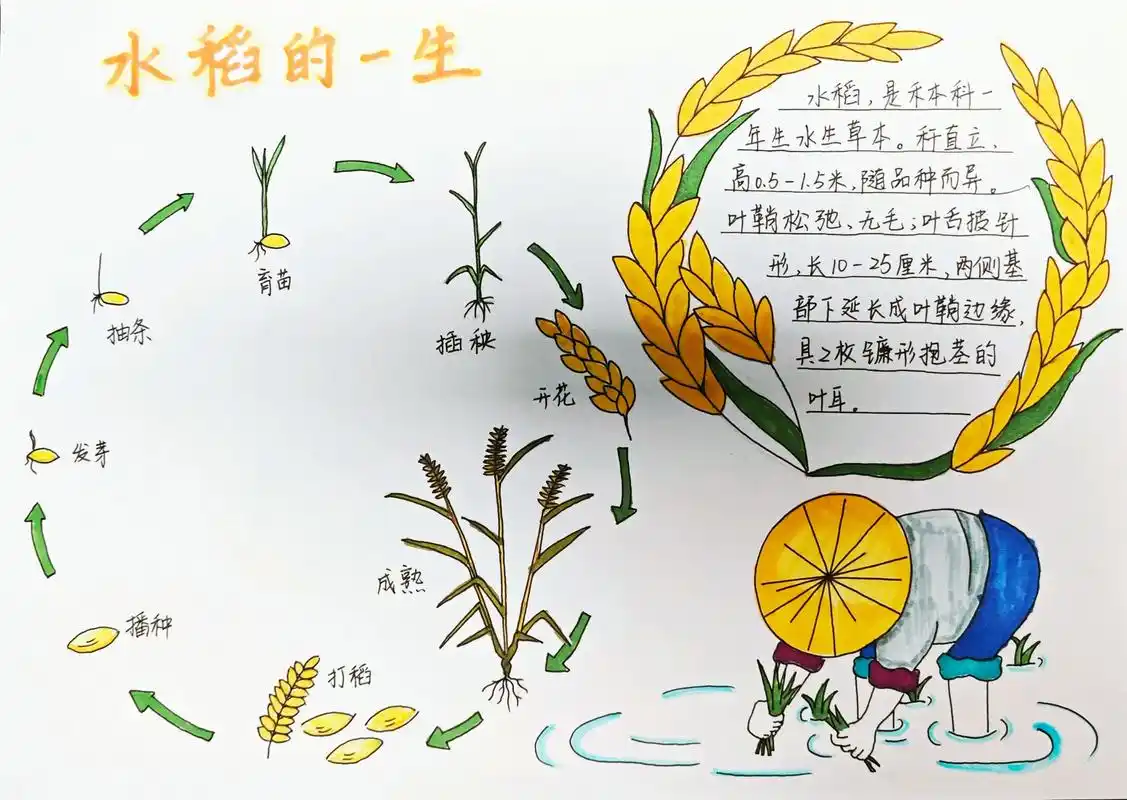 水稻的一生
水稻，是禾本科一
年生水生草本。秆直立，
高0.5-1.5米，随品种而异。
叶鞘松弛、无毛；叶舌披针
形，长10-25厘米，两侧基
部下延长成叶鞘边缘，
具2枚镰形抱茎的
叶耳。
育苗
插秧
抽条
开花
发芽
成熟
播种
打稻